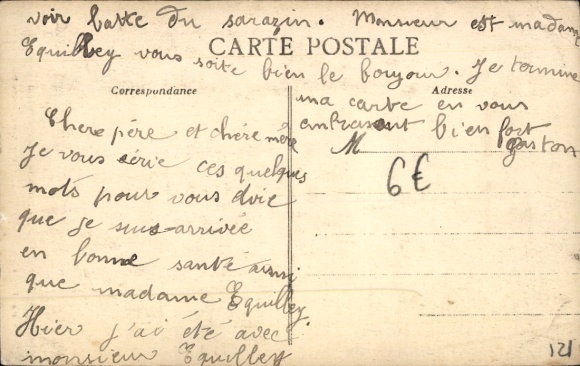 voir battre du sarazin. Monsieur est madame
Equilley vous soite bien le boujour. Je termine
CARTE POSTALE
Correspondance
Adresse
ma carte en vous
embrasant bien fort
gaston
M
6€
Chere père et chére mère
Je vous écrie ces quelques
mots pour vous dvie
que je suis arrivée
en bonne santé ainsi
que madame Equilley.
Hier j'ai été avec
monsieur Equilley
121